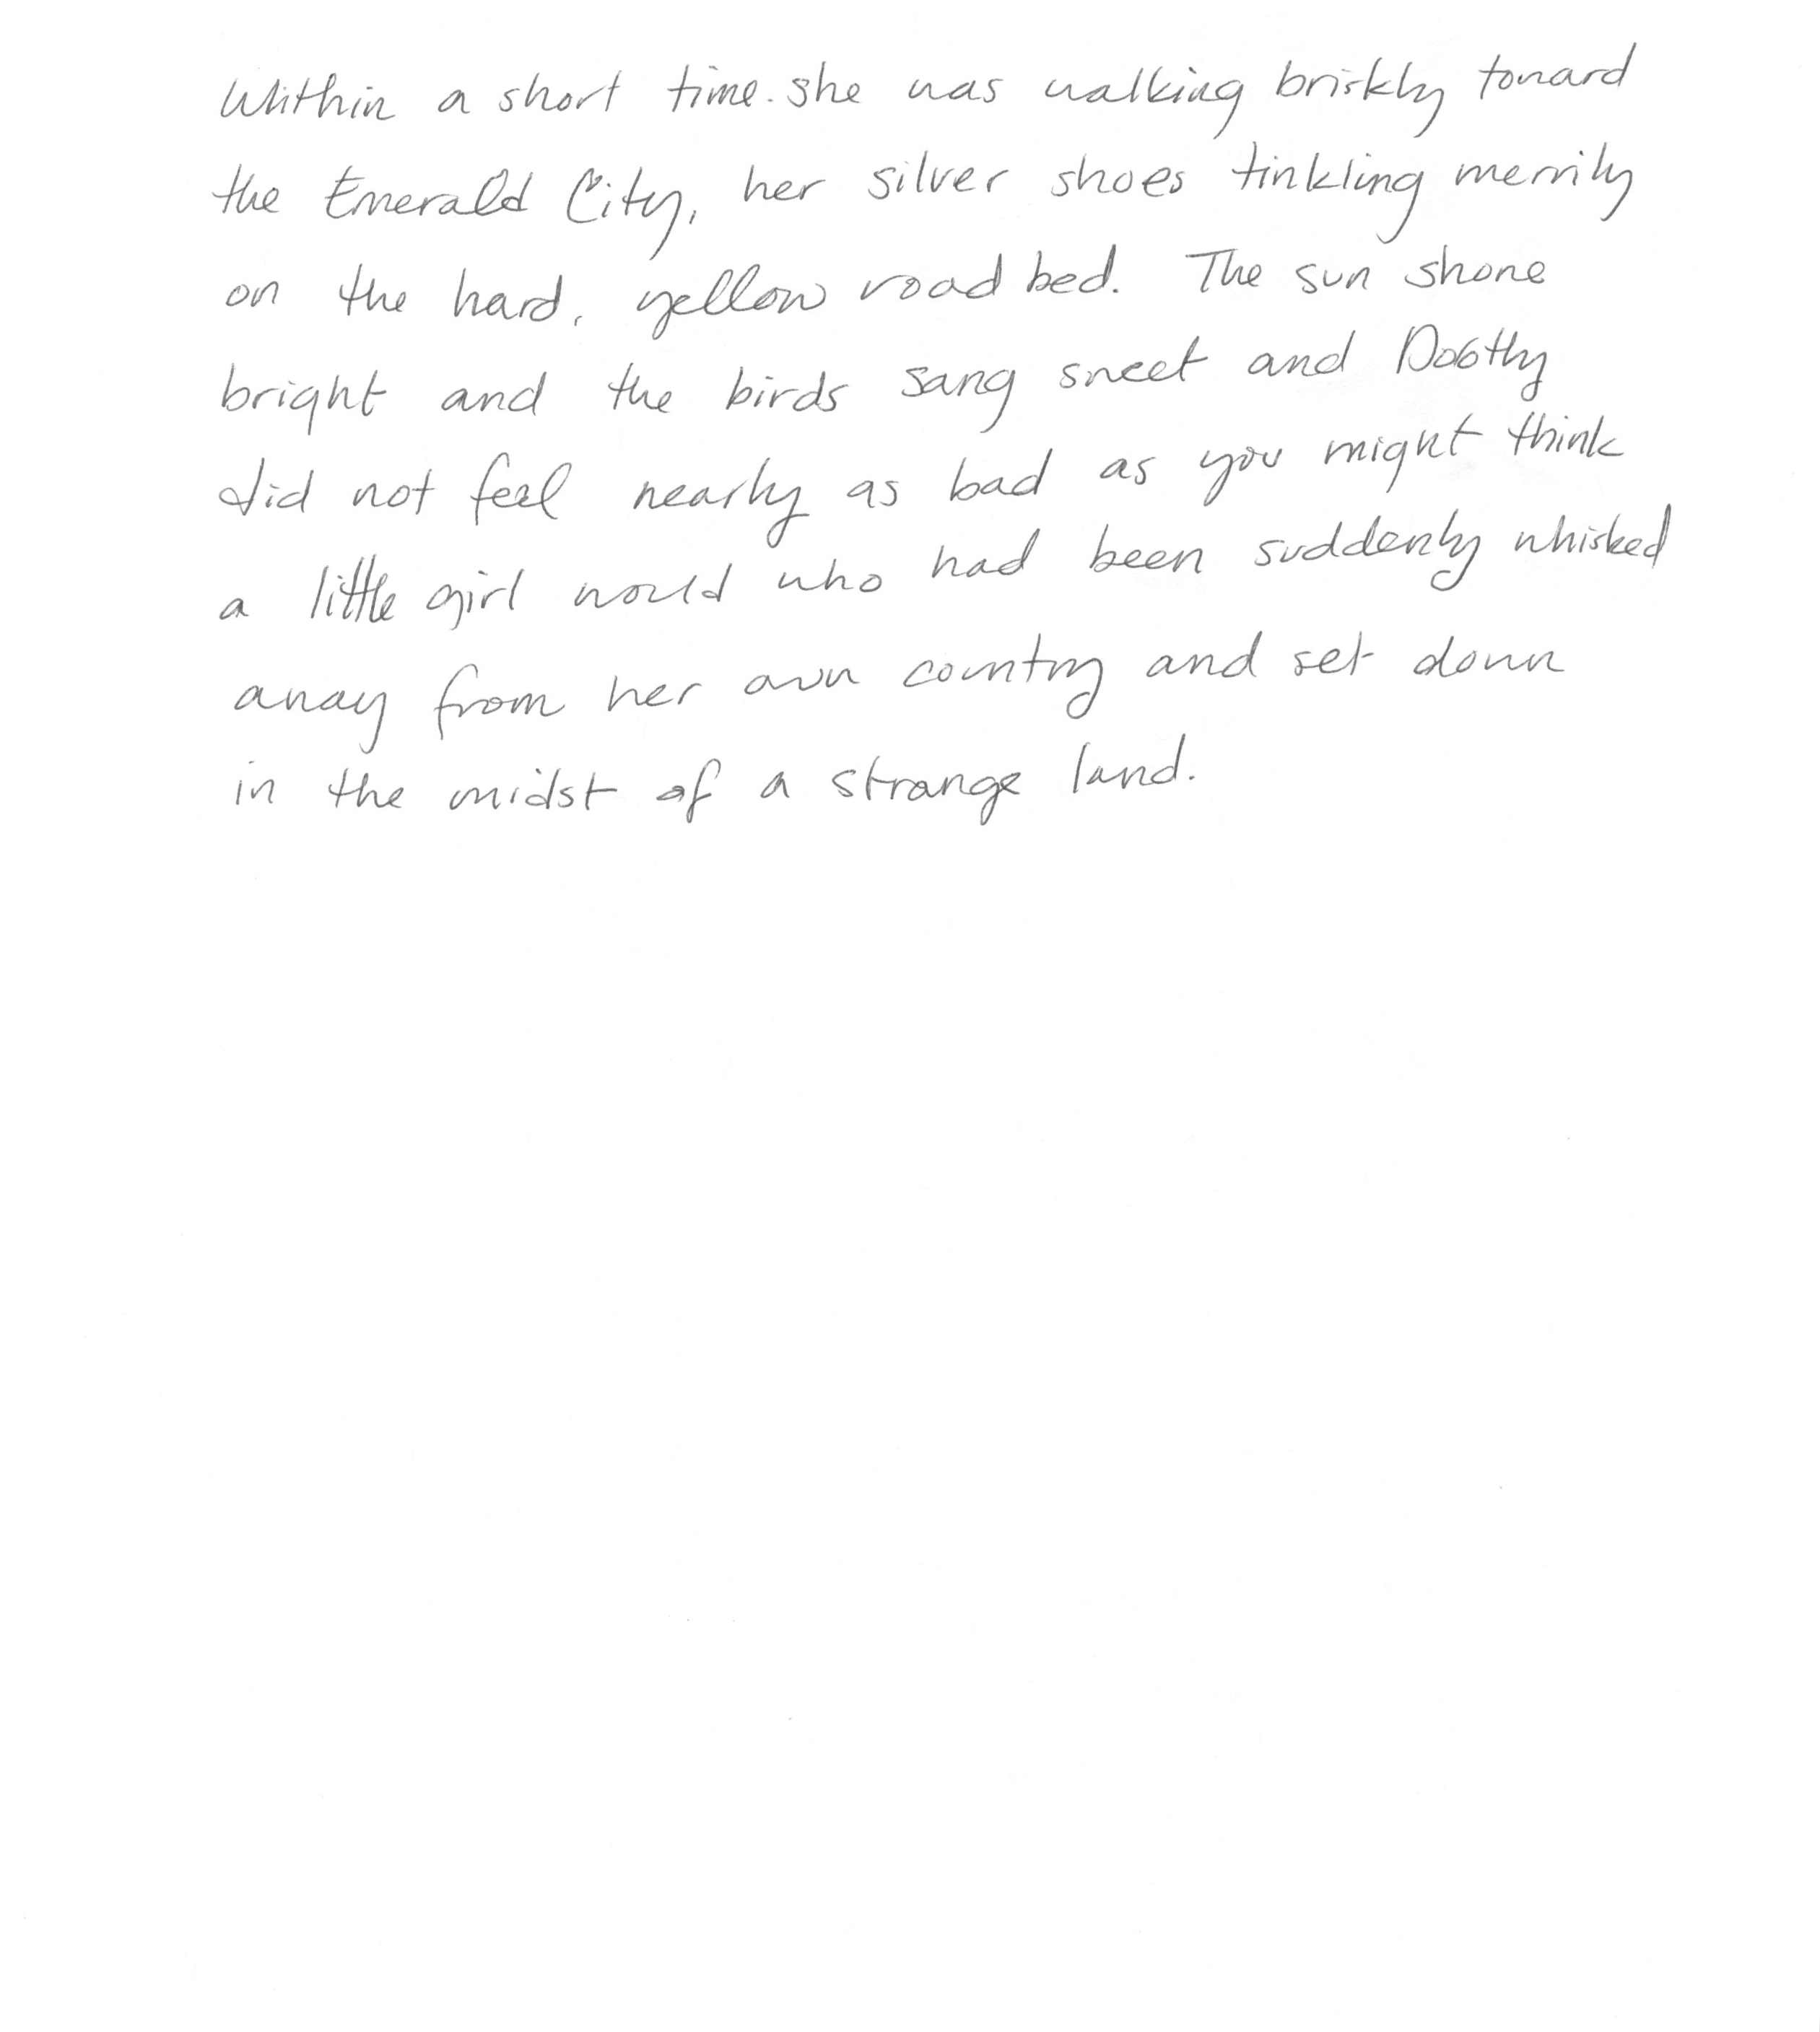 Within a short time. she was walking briskly toward
the Emerald City, her silver shoes tinkling merrily
on the hard, yellow road bed. The sun shone
bright and the birds sang sweet and Dorothy
did not feel nearly as bad as you might think
a little girl would who had been suddenly whisked
away from her own country and set down
in the midst of a strange land.